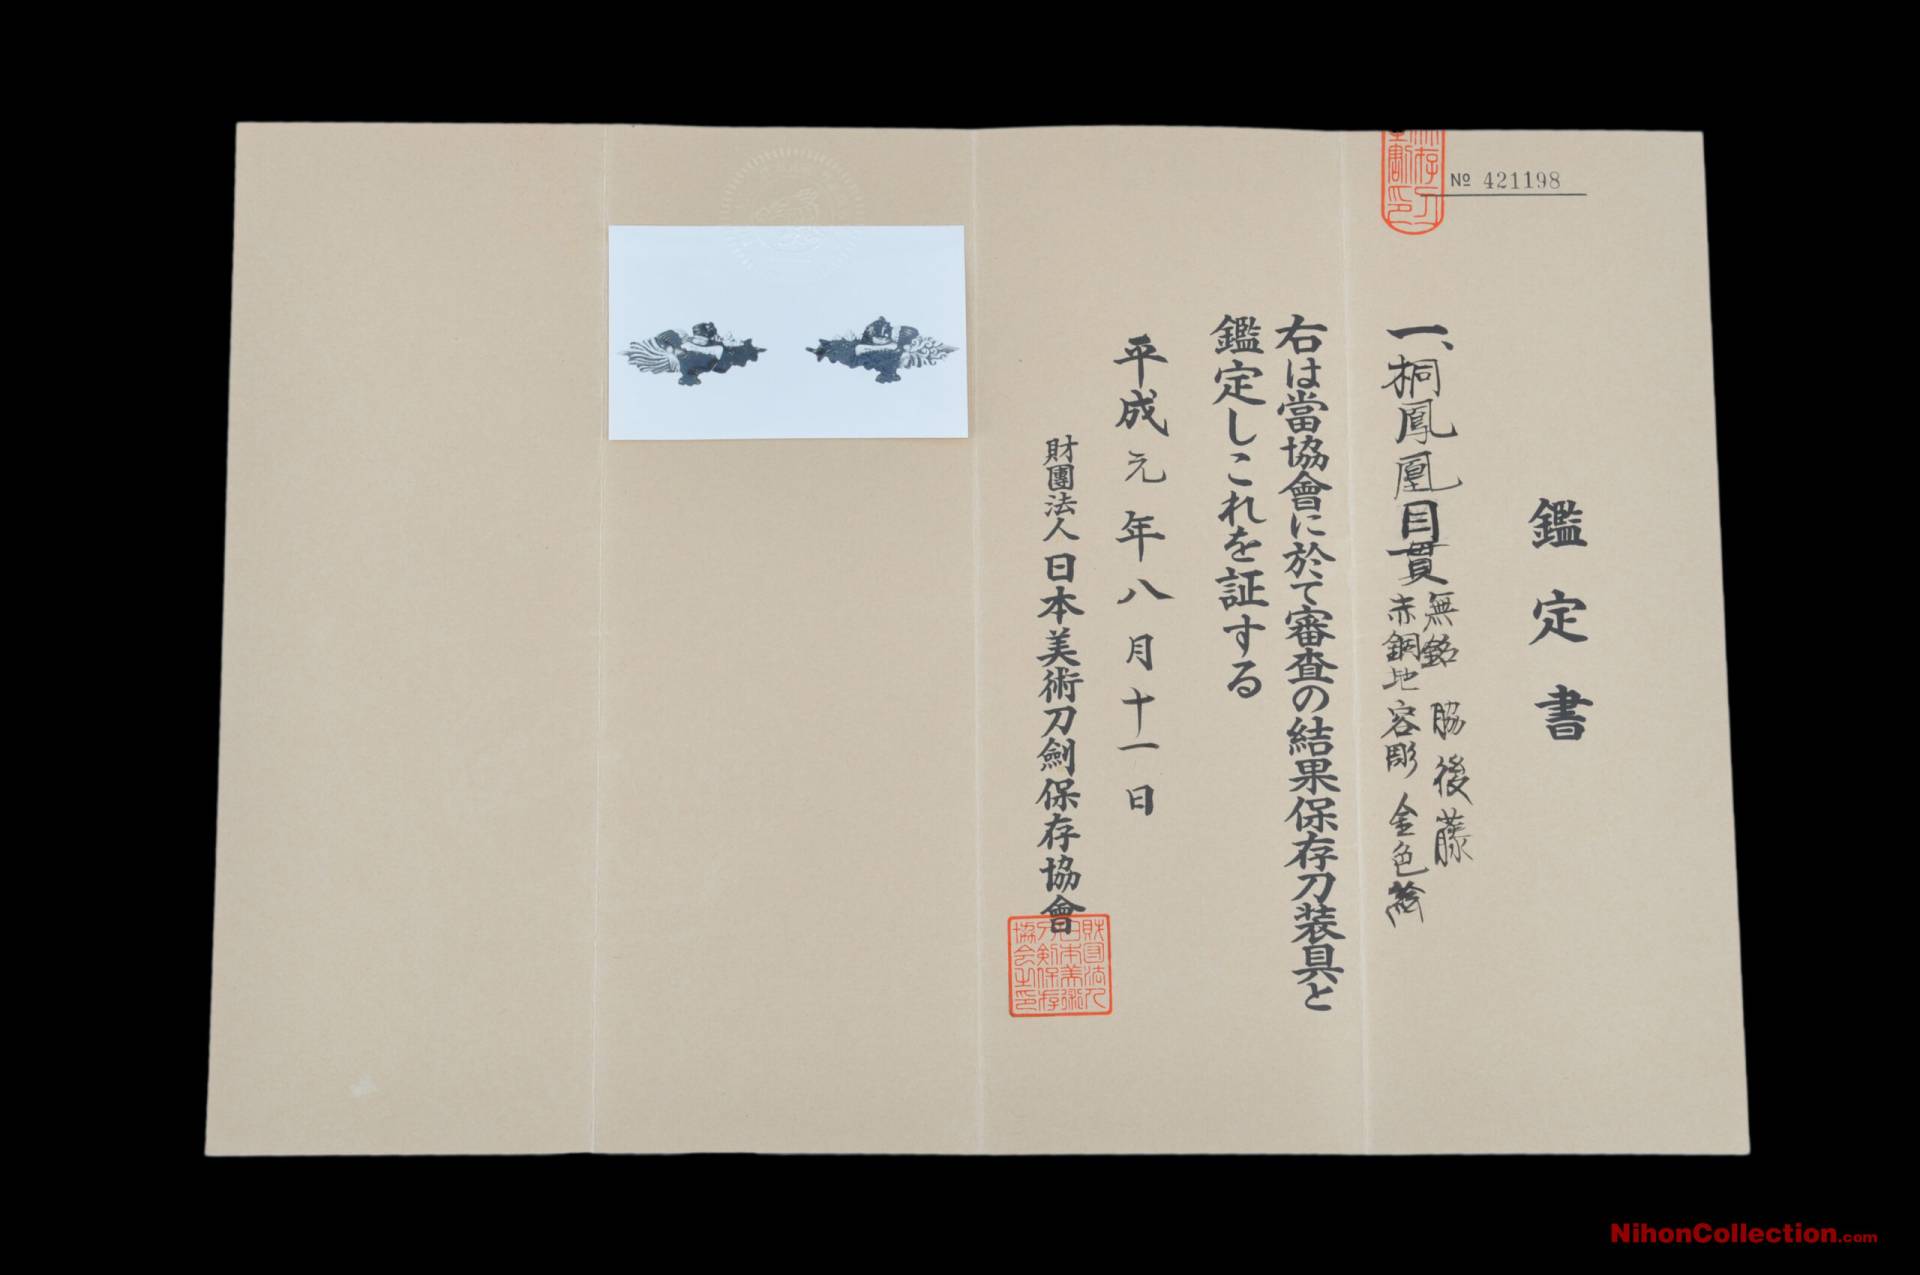 № 421198
鑑定書
一、桐鳳凰目貫 無銘 脇後藤
赤銅地容彫 金色絵
右は當協會に於て審査の結果保存刀装具と
鑑定しこれを証する
平成元年八月十一日
財團法人 日本美術刀劍保存協會
財団法人
日本美術
刀剣保存
協会之印
NihonCollection.com